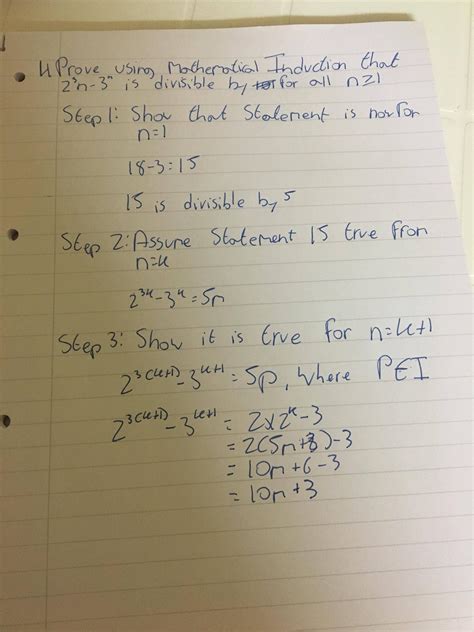 4 Prove using Mathematical Induction that
2³n-3ⁿ is divisible by for all n≥1
Step 1: Show that Statement is now for
n=1
18-3=15
15 is divisible by 5
Step 2: Assume Statement IS true from
n=k
2³ᵏ-3ᵏ=5m
Step 3: Show it is true for n=k+1
2³⁽ᵏ⁺¹⁾-3ᵏ⁺¹=5p, where PEI
2³⁽ᵏ⁺¹⁾-3ᵏ⁺¹ = 2x2ᵏ-3
= 2(5m+3)-3
= 10m+6-3
= 10m+3